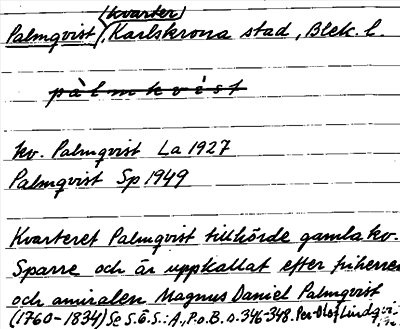 (kvarter)
Palmqvist, Karlskrona stad, Blek. l.
pàlmkvist
kv. Palmqvist La 1927
Palmqvist Sp 1949
Kvarteret Palmqvist tillhörde gamla kv.
Sparre och är uppkallat efter friherren
och amiralen Magnus Daniel Palmqvist
(1760-1834) Se S.Ö.S.: A., P.o.B. s. 346-348. Per-Olof Lindqvi